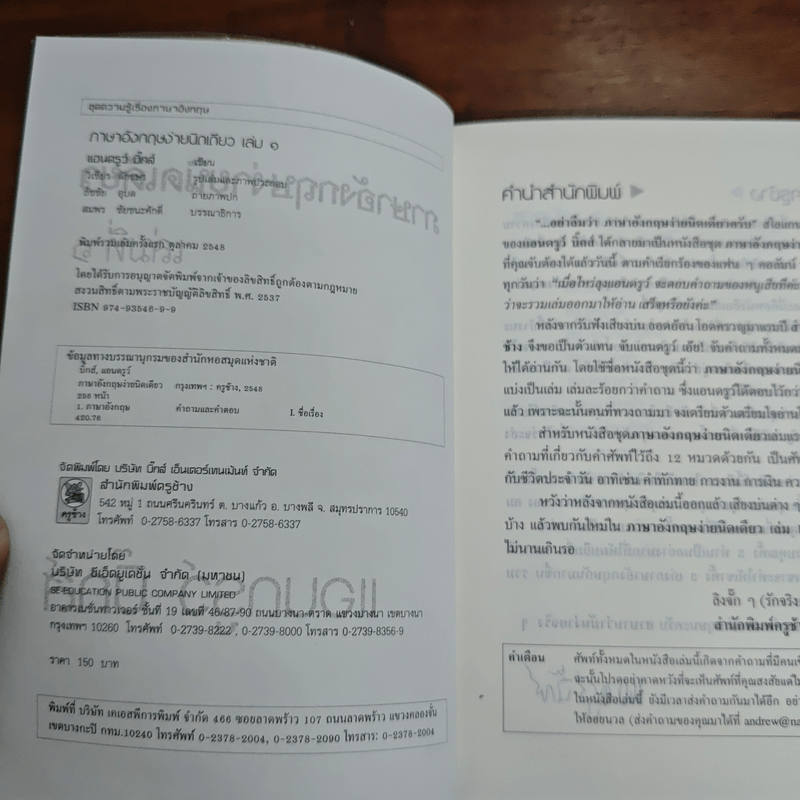 ชุดความรู้เรื่องภาษาอังกฤษ
ภาษาอังกฤษง่ายนิดเดียว เล่ม ๑
แอนดรูว์ บิ๊กส์ เขียน
รูปเล่มและภาพประกอบ
ธัชชัย ถ่ายภาพปก
สมพร ชัยชนะศักดิ์ บรรณาธิการ
พิมพ์รวมเล่มครั้งแรก ตุลาคม 2548
โดยได้รับการอนุญาตจัดพิมพ์จากเจ้าของลิขสิทธิ์ถูกต้องตามกฎหมาย
สงวนสิทธิ์ตามพระราชบัญญัติลิขสิทธิ์ พ.ศ. 2537
ISBN 974-93546-9-9
ข้อมูลทางบรรณานุกรมของสำนักหอสมุดแห่งชาติ
บิ๊กส์, แอนดรูว์
ภาษาอังกฤษง่ายนิดเดียว กรุงเทพฯ : ครูช้าง, 2548
256 หน้า
1. ภาษาอังกฤษ คำถามและคำตอบ I. ชื่อเรื่อง
420.76
จัดพิมพ์โดย บริษัท บิ๊กส์ เอ็นเตอร์เทนเม้นท์ จำกัด
สำนักพิมพ์ครูช้าง
ครูช้าง
542 หมู่ 1 ถนนศรีนครินทร์ ต. บางแก้ว อ. บางพลี จ. สมุทรปราการ 10540
โทรศัพท์ 0-2758-6337 โทรสาร 0-2758-6337
จัดจำหน่ายโดย
บริษัท ซีเอ็ดยูเคชั่น จำกัด (มหาชน)
SE-EDUCATION PUBLIC COMPANY LIMITED
อาคารเนชั่นทาวเวอร์ ชั้นที่ 19 เลขที่ 46/87-90 ถนนบางนา-ตราด แขวงบางนา เขตบางนา
กรุงเทพฯ 10260 โทรศัพท์ 0-2739-8222 , 0-2739-8000 โทรสาร 0-2739-8356-9
ราคา 150 บาท
พิมพ์ที่ บริษัท เคเอสพีการพิมพ์ จำกัด 466 ซอยลาดพร้าว 107 ถนนลาดพร้าว แขวงคลองจั่น
เขตบางกะปิ กทม.10240 โทรศัพท์ 0-2378-2004, 0-2378-2090 โทรสาร: 0-2378-2004
คำนำสำนักพิมพ์
"...อย่าลืมว่า ภาษาอังกฤษง่ายนิดเดียวครับ" สโลแกน
ของแอนดรูว์ บิ๊กส์ ได้กลายมาเป็นหนังสือชุด ภาษาอังกฤษง่า
ที่คุณจับต้องได้แล้ววันนี้ ตามคำเรียกร้องของแฟน ๆ คอลัมน์
ทุกวันว่า "เมื่อไหร่ลุงแอนดรูว์ จะตอบคำถามของหนูเสียทีคะ
ว่าจะรวมเล่มออกมาให้อ่าน เสร็จหรือยังค่ะ"
หลังจากรับฟังเสียงบ่น ออดอ้อน โอดครวญมาแรมปี สำ
ช้าง จึงขอเป็นตัวแทน จับแอนดรูว์ เอ้ย! จับคำถามทั้งหมด
ให้ได้อ่านกัน โดยใช้ชื่อหนังสือชุดนี้ว่า ภาษาอังกฤษง่ายนิ
แบ่งเป็นเล่ม เล่มละร้อยกว่าคำถาม ซึ่งแอนดรูว์ได้ตอบไว้กว่
แล้ว เพราะฉะนั้นคนที่ทวงถามมา จงเตรียมตัวเตรียมใจอ่านไ
สำหรับหนังสือชุดภาษาอังกฤษง่ายนิดเดียวเล่มแร
คำถามที่เกี่ยวกับคำศัพท์ไว้ถึง 12 หมวดด้วยกัน เป็นศั
กับชีวิตประจำวัน อาทิเช่น คำทักทาย การงาน การเงิน คว
หวังว่าหลังจากหนังสือเล่มนี้ออกแล้ว เสียงบ่นต่าง ๆ
บ้าง แล้วพบกันใหม่ใน ภาษาอังกฤษง่ายนิดเดียว เล่ม
ไม่นานเกินรอ
ลิงจั๊ก ๆ (รักจริง
สำนักพิมพ์ครูช้า
คำเตือน ศัพท์ทั้งหมดในหนังสือเล่มนี้เกิดจากคำถามที่มีคนเข้
ฉะนั้นโปรดอย่าคาดหวังที่จะเห็นศัพท์ที่คุณสงสัยแต่ไม
ในหนังสือเล่มนี้ ยังมีเวลาส่งคำถามกันมาได้อีก อย่า
ให้ลอยนวล (ส่งคำถามของคุณมาได้ที่ andrew@na